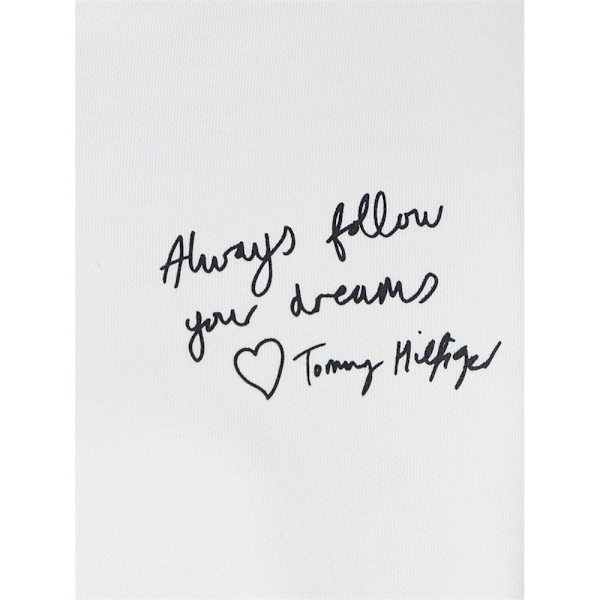 Always follow
your dreams
♡ Tommy Hilfiger